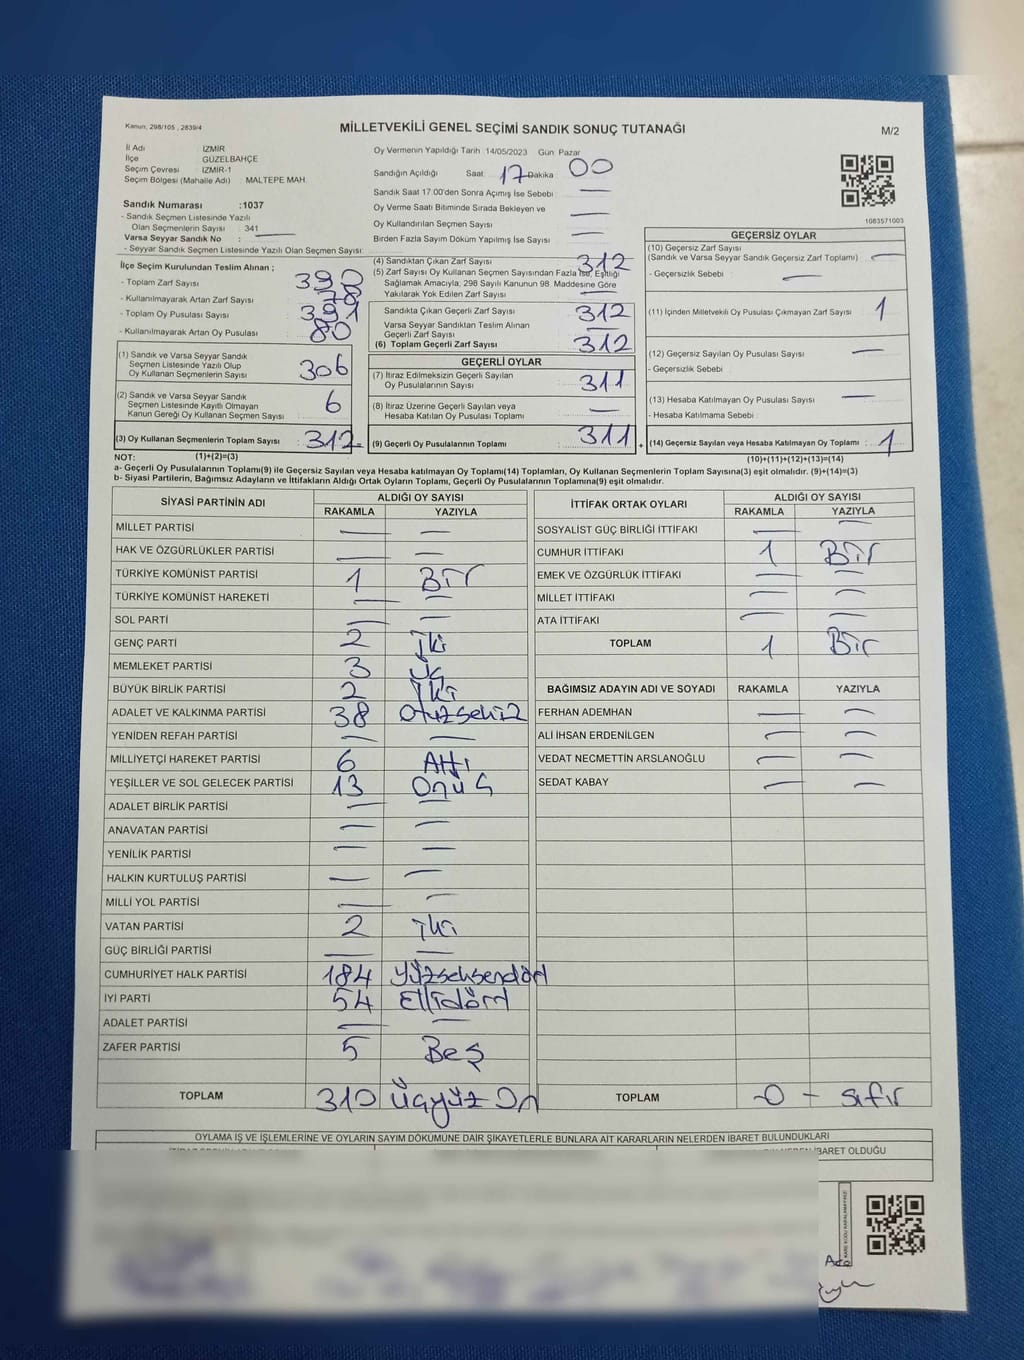 Kanun, 298/105 , 2839/4
MİLLETVEKİLİ GENEL SEÇİMİ SANDIK SONUÇ TUTANAĞI
M/2
İl Adı İZMİR
İlçe GÜZELBAHÇE
Seçim Çevresi İZMİR-1
Seçim Bölgesi (Mahalle Adı) MALTEPE MAH.
Oy Vermenin Yapıldığı Tarih :14/05/2023 Gün Pazar
Sandığın Açıldığı Saat: 17 Dakika 00
Sandık Saat 17.00'den Sonra Açımış İse Sebebi —
Oy Verme Saati Bitiminde Sırada Bekleyen ve
Oy Kullandırılan Seçmen Sayısı —
Birden Fazla Sayım Döküm Yapılmış İse Sayısı —
1083571003
Sandık Numarası :1037
- Sandık Seçmen Listesinde Yazılı
Olan Seçmenlerin Sayısı : 341
Varsa Seyyar Sandık No : —
- Seyyar Sandık Seçmen Listesinde Yazılı Olan Seçmen Sayısı:
İlçe Seçim Kurulundan Teslim Alınan ;
- Toplam Zarf Sayısı : 390
- Kullanılmayarak Artan Zarf Sayısı : 78
- Toplam Oy Pusulası Sayısı : 391
- Kullanılmayarak Artan Oy Pusulası : 80
(1) Sandık ve Varsa Seyyar Sandık
Seçmen Listesinde Yazılı Olup
Oy Kullanan Seçmenlerin Sayısı : 306
(2) Sandık ve Varsa Seyyar Sandık
Seçmen Listesinde Kayıtlı Olmayan
Kanun Gereği Oy Kullanan Seçmen Sayısı : 6
(3) Oy Kullanan Seçmenlerin Toplam Sayısı : 312
(4) Sandıktan Çıkan Zarf Sayısı 312
(5) Zarf Sayısı Oy Kullanan Seçmen Sayısından Fazla İse, Eşitliği
Sağlamak Amacıyla, 298 Sayılı Kanunun 98. Maddesine Göre
Yakılarak Yok Edilen Zarf Sayısı —
Sandıkta Çıkan Geçerli Zarf Sayısı : 312
Varsa Seyyar Sandıktan Teslim Alınan
Geçerli Zarf Sayısı : —
(6) Toplam Geçerli Zarf Sayısı : 312
GEÇERLİ OYLAR
(7) İtiraz Edilmeksizin Geçerli Sayılan
Oy Pusulalarının Sayısı : 311
(8) İtiraz Üzerine Geçerli Sayılan veya
Hesaba Katılan Oy Pusulası Toplamı : —
(9) Geçerli Oy Pusulalarının Toplamı : 311
GEÇERSİZ OYLAR
(10) Geçersiz Zarf Sayısı
(Sandık ve Varsa Seyyar Sandık Geçersiz Zarf Toplamı) : —
- Geçersizlik Sebebi : —
(11) İçinden Milletvekili Oy Pusulası Çıkmayan Zarf Sayısı : 1
(12) Geçersiz Sayılan Oy Pusulası Sayısı : —
- Geçersizlik Sebebi :
(13) Hesaba Katılmayan Oy Pusulası Sayısı : —
- Hesaba Katılmama Sebebi :
+ (14) Geçersiz Sayılan veya Hesaba Katılmayan Oy Toplamı : 1
NOT: (1)+(2)=(3) (10)+(11)+(12)+(13)=(14)
a- Geçerli Oy Pusulalarının Toplamı(9) ile Geçersiz Sayılan veya Hesaba katılmayan Oy Toplamı(14) Toplamları, Oy Kullanan Seçmenlerin Toplam Sayısına(3) eşit olmalıdır. (9)+(14)=(3)
b- Siyasi Partilerin, Bağımsız Adayların ve İttifakların Aldığı Ortak Oyların Toplamı, Geçerli Oy Pusulalarının Toplamına(9) eşit olmalıdır.
SİYASİ PARTİNİN ADI ALDIĞI OY SAYISI
RAKAMLA YAZIYLA
MİLLET PARTİSİ — —
HAK VE ÖZGÜRLÜKLER PARTİSİ — —
TÜRKİYE KOMÜNİST PARTİSİ 1 Bir
TÜRKİYE KOMÜNİST HAREKETİ — —
SOL PARTİ — —
GENÇ PARTİ 2 İki
MEMLEKET PARTİSİ 3 Üç
BÜYÜK BİRLİK PARTİSİ 2 İki
ADALET VE KALKINMA PARTİSİ 38 Otuzsekiz
YENİDEN REFAH PARTİSİ — —
MİLLİYETÇİ HAREKET PARTİSİ 6 Altı
YEŞİLLER VE SOL GELECEK PARTİSİ 13 Onüç
ADALET BİRLİK PARTİSİ — —
ANAVATAN PARTİSİ — —
YENİLİK PARTİSİ — —
HALKIN KURTULUŞ PARTİSİ — —
MİLLİ YOL PARTİSİ — —
VATAN PARTİSİ 2 iki
GÜÇ BİRLİĞİ PARTİSİ — —
CUMHURİYET HALK PARTİSİ 184 Yüzseksendört
İYİ PARTİ 54 Ellidört
ADALET PARTİSİ — —
ZAFER PARTİSİ 5 Beş
TOPLAM 310 Üçyüz On
İTTİFAK ORTAK OYLARI ALDIĞI OY SAYISI
RAKAMLA YAZIYLA
SOSYALİST GÜÇ BİRLİĞİ İTTİFAKI — —
CUMHUR İTTİFAKI 1 Bir
EMEK VE ÖZGÜRLÜK İTTİFAKI — —
MİLLET İTTİFAKI — —
ATA İTTİFAKI — —
TOPLAM 1 Bir
BAĞIMSIZ ADAYIN ADI VE SOYADI RAKAMLA YAZIYLA
FERHAN ADEMHAN — —
ALİ İHSAN ERDENİLGEN — —
VEDAT NECMETTİN ARSLANOĞLU — —
SEDAT KABAY — —
TOPLAM -0 - sıfır
OYLAMA İŞ VE İŞLEMLERİNE VE OYLARIN SAYIM DÖKÜMÜNE DAİR ŞİKAYETLERLE BUNLARA AİT KARARLARIN NELERDEN İBARET BULUNDUKLARI
İBARET OLDUĞU
KARE KODU KARALAMAYINIZ!